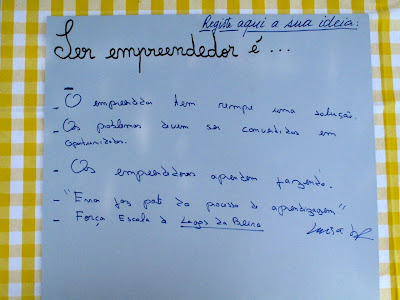 Registe aqui a sua ideia:
Ser empreendedor é...
- O empreendedor tem sempre uma solução.
- Os problemas devem ser convertidos em
oportunidades.
- Os empreendedores aprendem fazendo.
- "Errar faz parte do processo de aprendizagem"
- Força Escola de Lagos da Beira